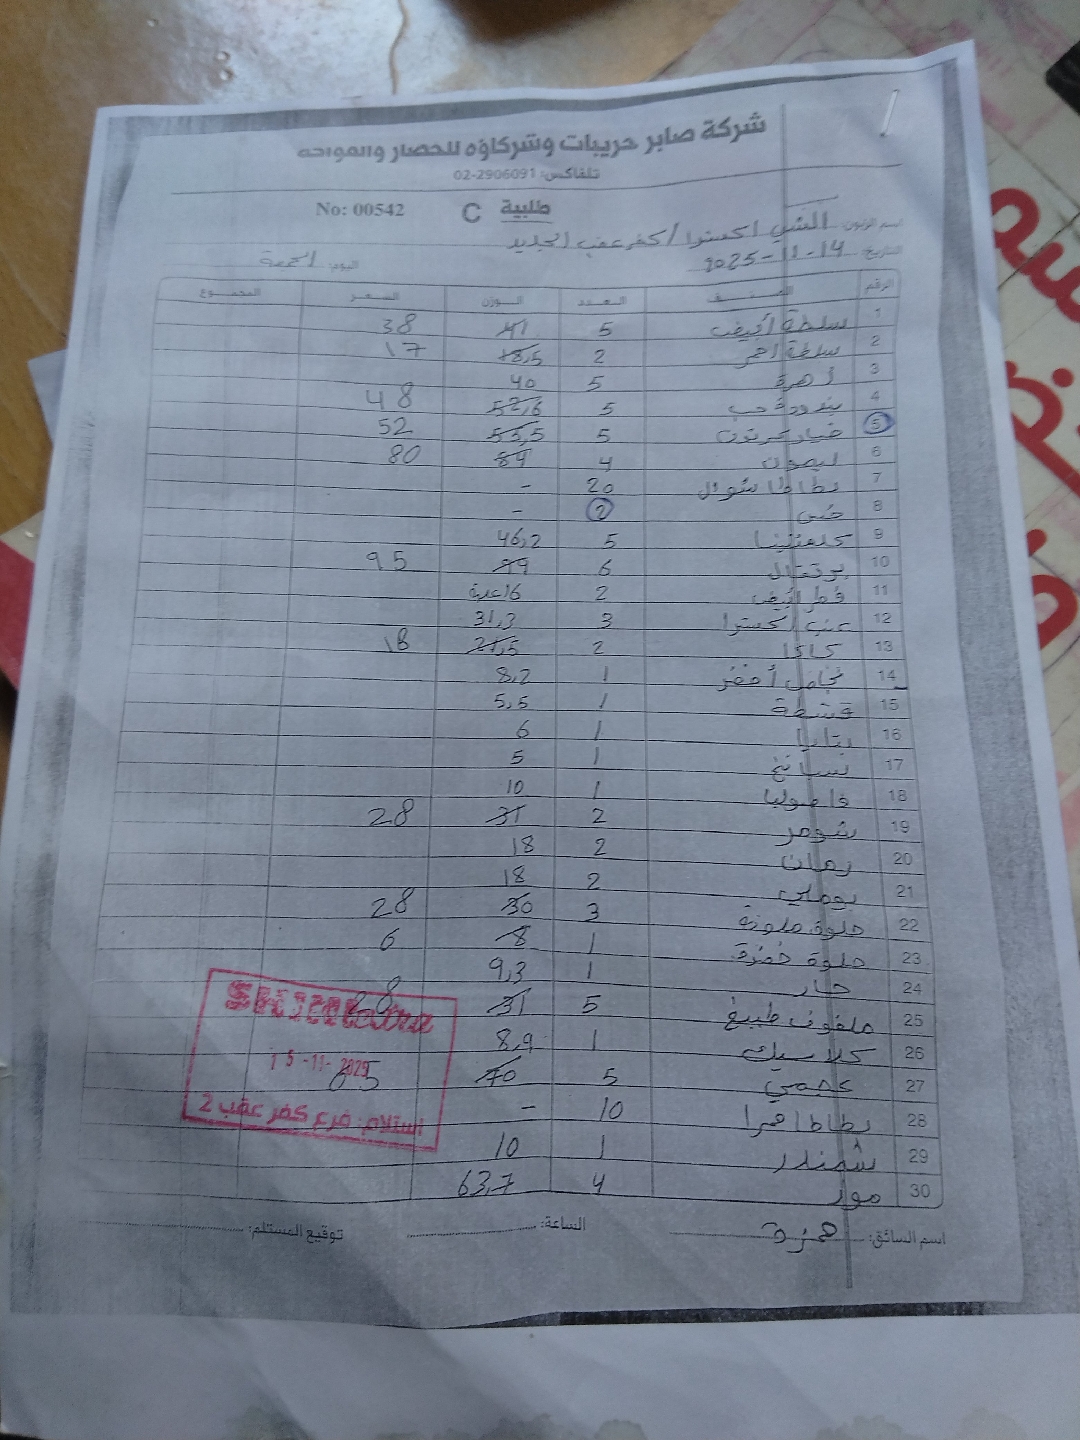 شركة صابر حريبات وشركاؤه للخضار والفواكه
تلفاكس: 02-2906091
طلبية C No: 00542
اسم الزبون: الشني اكسترا / كفر عقب الجديد
التاريخ: 14-11-2025 اليوم: الجمعة
الرقم الصنف العدد الوزن السعر المجموع
1 سلطة أبيض 5 41 38
2 سلطة احمر 2 18,5 17
3 زهرة 5 40
4 بندورة حب 5 52,6 48
5 خيار كرتون 5 55,5 52
6 ليمون 4 84 80
7 بطاطا شوال 20 -
8 خس 2 -
9 كلمنتينا 5 46,2
10 برتقال 6 99 95
11 فطر ابيض 2 16 علبة
12 عنب اكسترا 3 31,3
13 كاكا 2 21,5 18
14 أخضر 1 8,2
15 قشطة 1 5,5
16 بتايا 1 6
17 سبانخ 1 5
18 فاصوليا 1 10
19 شومر 2 31 28
20 رمان 2 18
21 بوملي 2 18
22 حلوة ملونة 3 30 28
23 حلوة خضرة 1 8 6
24 حار 1 9,3
25 ملفوف طبيخ 5 31 28
26 كلاسيك 1 8,9
27 عجمي 5 70 65
28 بطاطا حمرا 10 -
29 شمندر 1 10
30 موز 4 63,7
15-11-2025
استلام: فرع كفر عقب 2
اسم السائق: حمزة الساعة: توقيع المستلم: